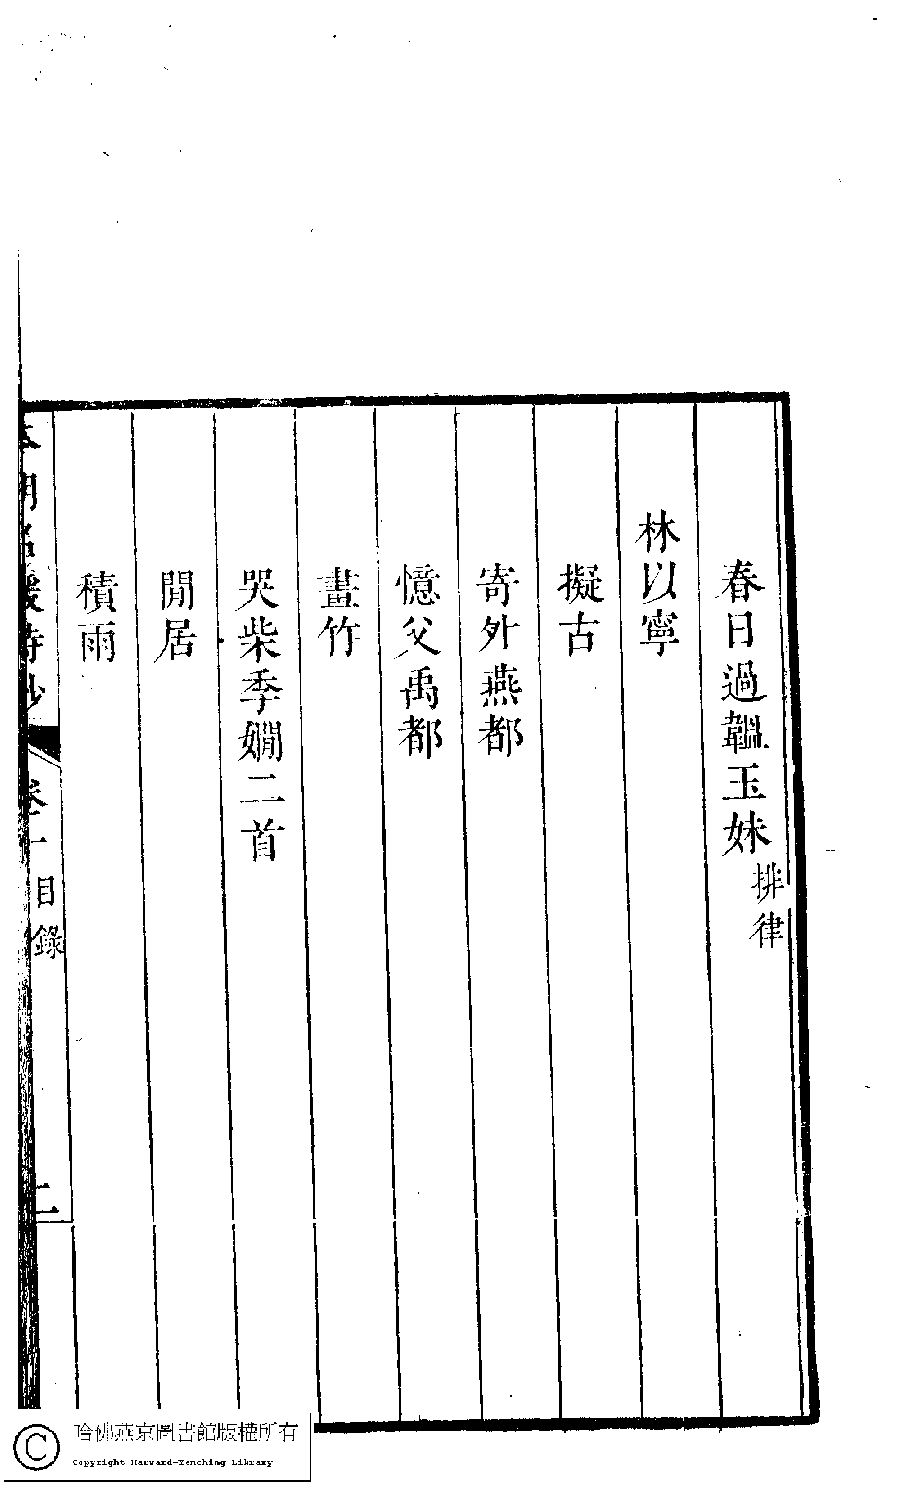 春日過韞玉妹排律
林以寧
擬古
寄外燕都
憶父禹都
畫竹
哭柴季嫺二首
閒居
積雨
本朝名媛詩鈔 卷一 目錄 二
哈佛燕京圖書館版權所有
Copyright Harvard-Yenching Library